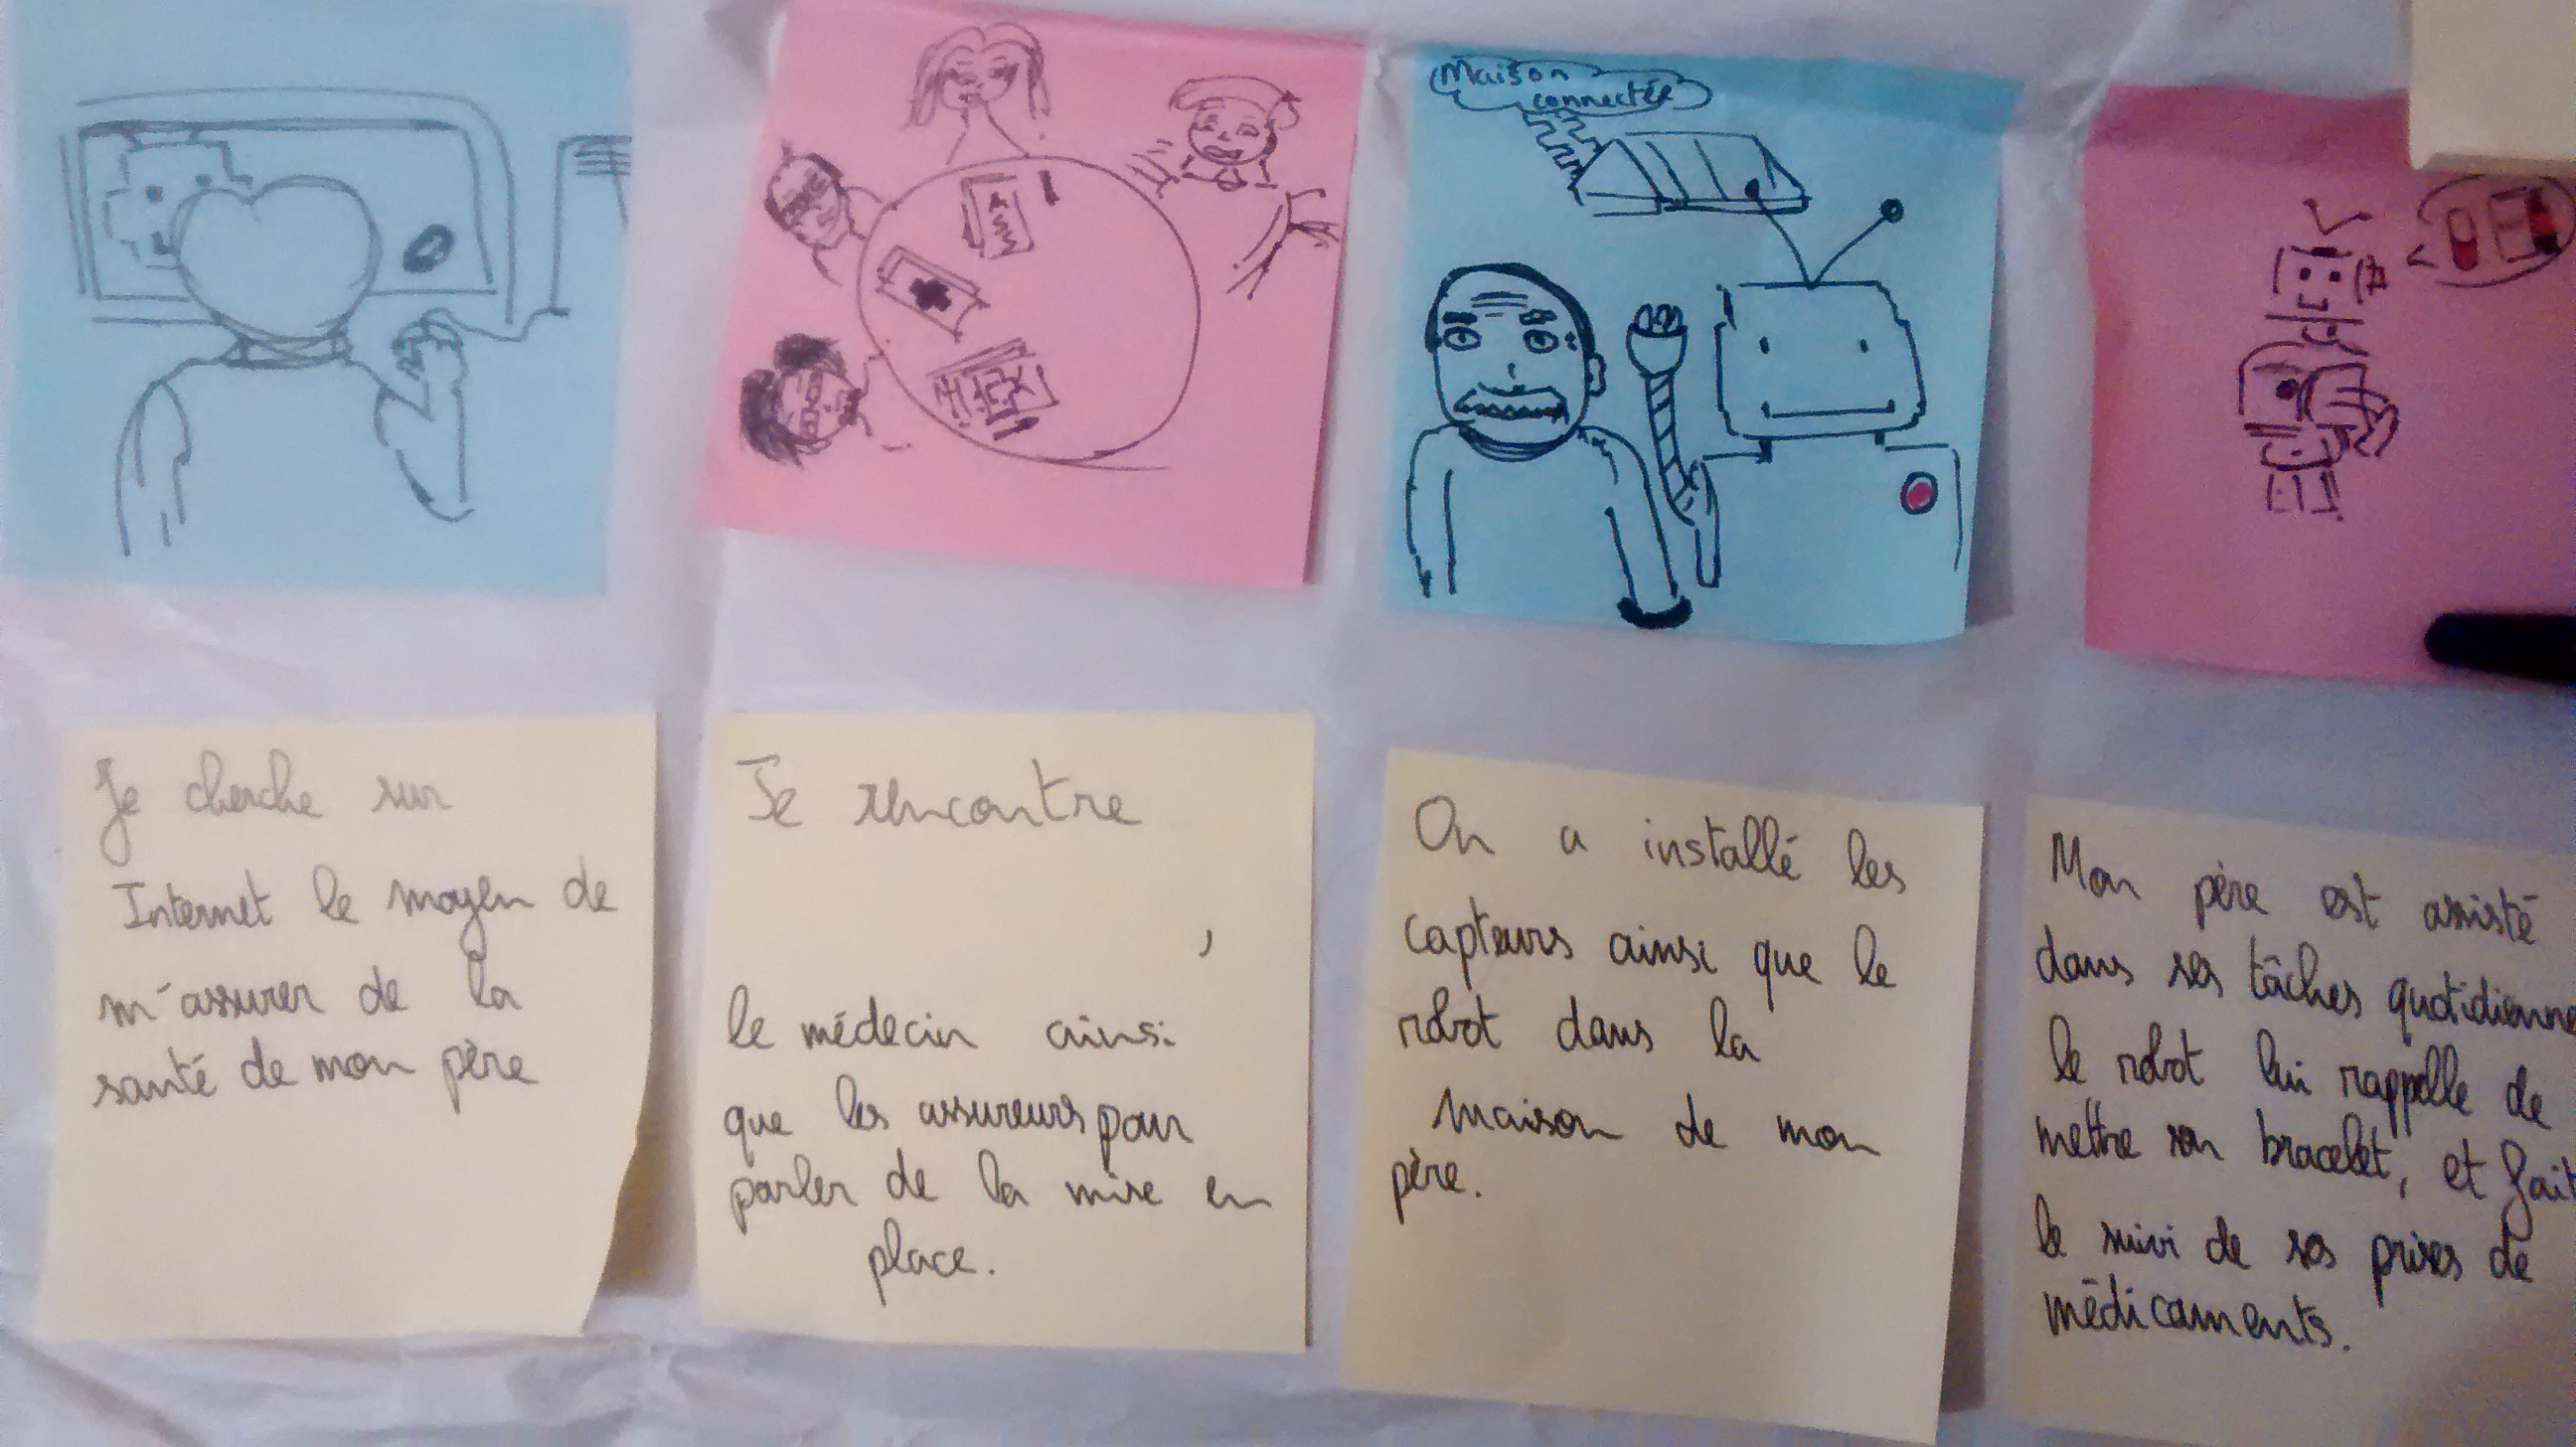 Maison
connectée
Je cherche sur
Internet le moyen de
m'assurer de la
santé de mon père
Je rencontre
,
le médecin ainsi
que les assureurs pour
parler de la mise en
place.
On a installé les
capteurs ainsi que le
robot dans la
maison de mon
père.
Mon père est assisté
dans ses tâches quotidienne
le robot lui rappelle de
mettre son bracelet, et fait
le suivi de ses prises de
médicaments.